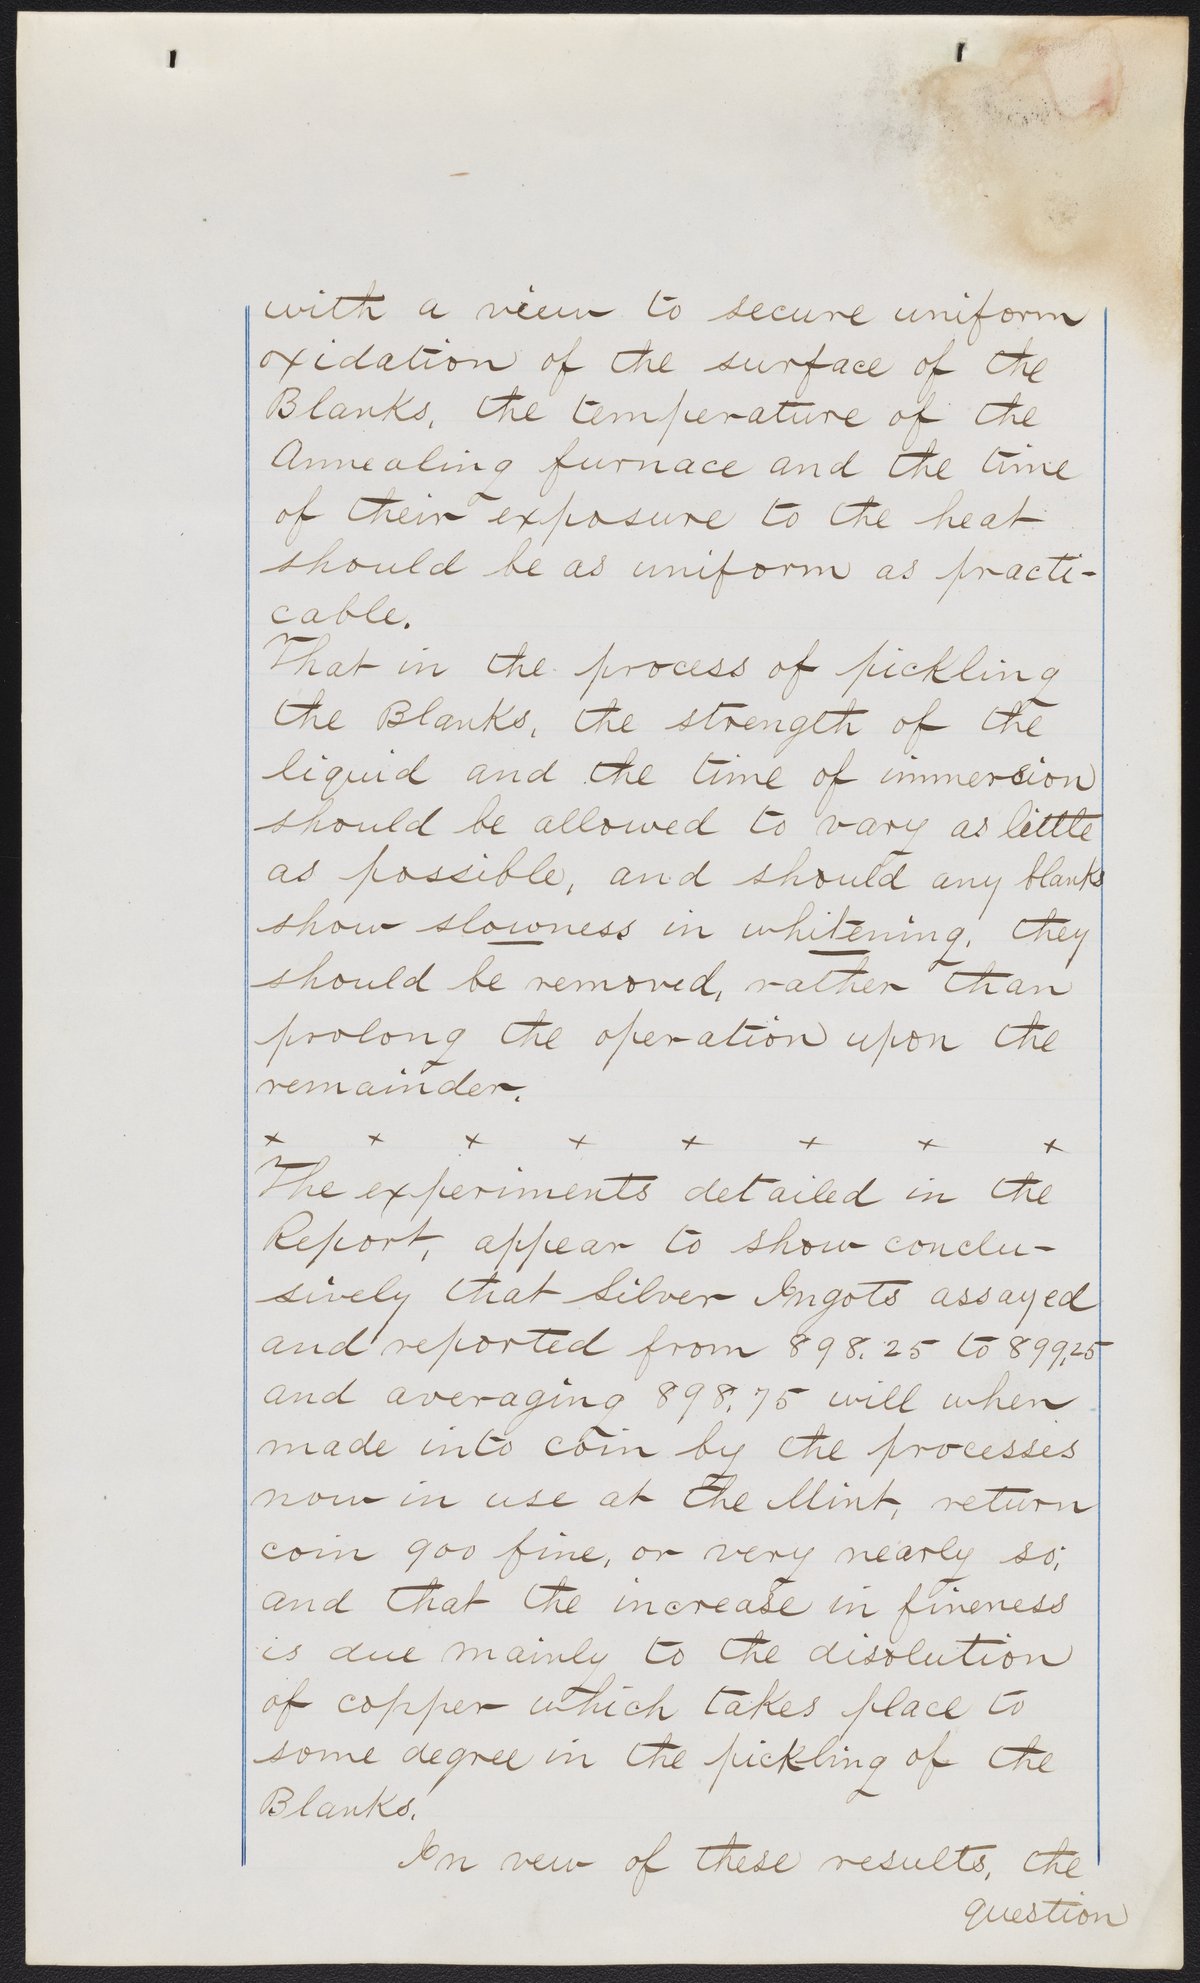 with a view to secure uniform
oxidation of the surface of the
Blanks, the temperature of the
Annealing furnace and the time
of their exposure to the heat
should be as uniform as practi-
cable.
That in the process of pickling
the Blanks, the strength of the
liquid and the time of immersion
should be allowed to vary as little
as possible, and should any blanks
show slowness in whitening, they
should be removed, rather than
prolong the operation upon the
remainder.
x x x x x x x x
The experiments detailed in the
Report, appear to show conclu-
sively that Silver Ingots assayed
and reported from 898.25 to 899.25
and averaging 898.75 will when
made into coin by the processes
now in use at the Mint, return
coin 900 fine, or very nearly so;
and that the increase in fineness
is due mainly to the disolution
of copper which takes place to
some degree in the pickling of the
Blanks.
In veiw of these results, the
question